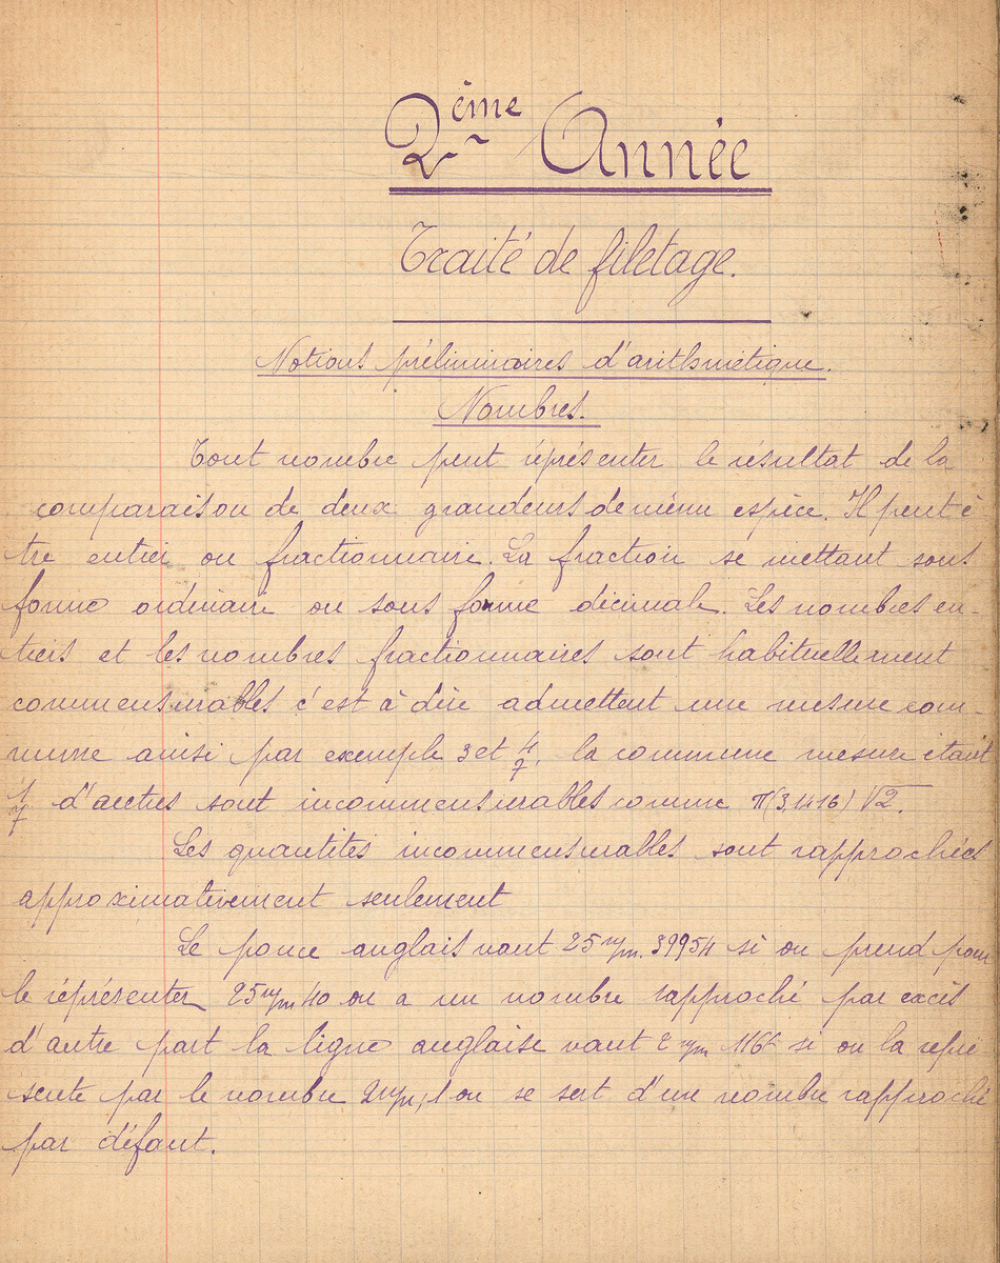 2ème Année
Traité de filetage.
Notions préliminaires d'arithmétique.
Nombres.
Tout nombre peut réprésenter le résultat de la
comparaison de deux grandeurs de même espèce. Il peut ê
tre entier ou fractionnaire. La fraction se mettant sous
forme ordinaire ou sous forme décimale. Les nombres en-
tiers et les nombres fractionnaires sont habituellement
commensurables c'est à dire admettent une mesure com-
mune ainsi par exemple 3 et 4/7, la commune mesure étant
1/7 d'autres sont incommensurables comme π(3,1416) √2.
Les quantités incommensurables sont rapprochées
approximativement seulement
Le pouce anglais vaut 25 m/m. 39954 si on prend pour
le réprésenter 25 m/m 40 on a un nombre rapproché par excès
d'autre part la ligne anglaise vaut 2 m/m 116 si on la repré
sente par le nombre 2 m/m,1 on se sert d'un nombre rapproché
par défaut.